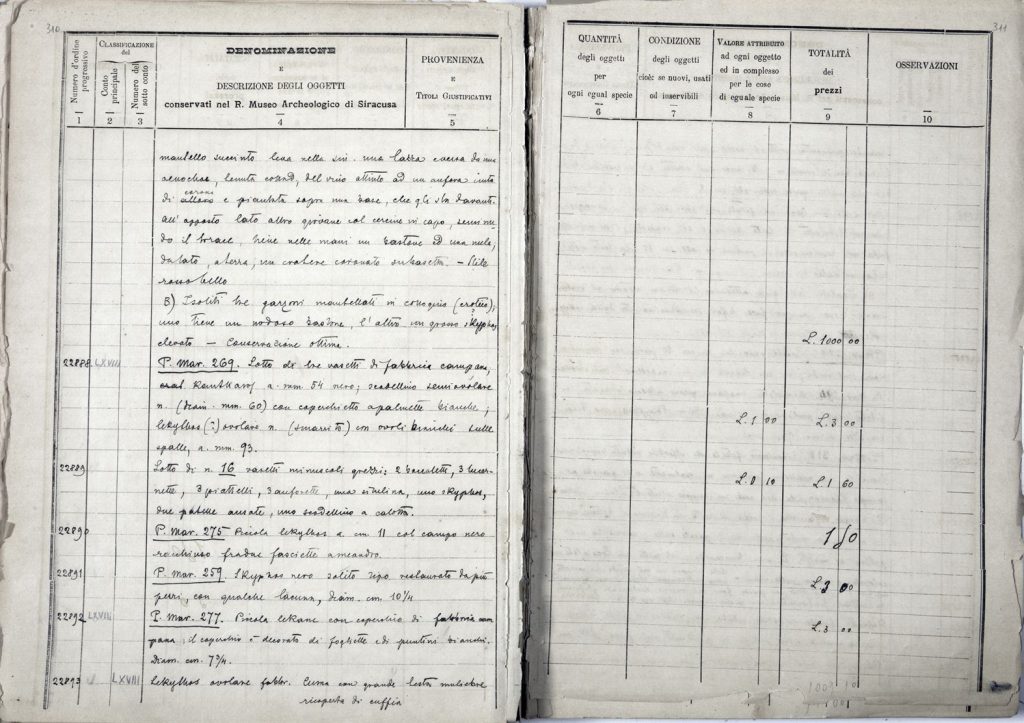 310
Numero d'ordine progressivo
CLASSIFICAZIONE del
Conto principale
Numero del sotto conto
DENOMINAZIONE
E
DESCRIZIONE DEGLI OGGETTI
conservati nel R. Museo Archeologico di Siracusa
PROVENIENZA
E
TITOLI GIUSTIFICATIVI
1 2 3 4 5
mantello succinto leva nella sin. una tazza e versa da una
oenochoe, del vino attinto ad un anfora
di corona e piantata sopra una base, che gli sta davanti
all'opposto lato altro giovane col cercine in capo,
do il brace, tiene nelle mani un bastone ed una mela,
da lato, a terra, un cratere coronato su basetta. — Stile
rosso bello
B) I soliti tre garzoni mantellati in colloquio
uno tiene un nodoso bastone, l'altro un grosso skyphos
elevato — Conservazione ottima.
22888 LXVIII P. Mar. 269. Lotto di tre vasetti di fabbrica campana,
kantharos a. mm. 54 nero; scodellino semiovolare
n. (diam. mm. 60) con coperchietto a palmette bianche;
lekythos (?) ovolare n. (smarrito) con ovoli bianchi sulle
spalle, a. mm. 93.
22889 Lotto di n. 16 vasetti minuscoli grezzi: 2 boccaletti, 3 lucer-
nette, 3 piattelli, 3 anforette, una situlina, uno skyphos,
due patelle ansate, uno scodellino a calotta.
22890 P. Mar. 275 Piccola lekythos a cm. 11 col campo nero
racchiuso fra due fasciette a meandro.
22891 P. Mar. 259. Skyphos nero solito tipo restaurato da più
pezzi, con qualche lacuna, diam. cm. 10 1/4
22892 LXVIII P. Mar. 277. Piccola lekane con coperchio di fabbrica cam-
pana; il coperchio è decorato di fogliette e di puntini bianchi.
Diam. cm. 7 3/4.
22893 LXVIII Lekythos ovolare fabbr. Cuma con grande testa muliebre
ricoperta di cuffia
311
QUANTITÀ
degli oggetti
per
ogni egual specie
CONDIZIONE
degli oggetti
cioè: se nuovi, usati
od inservibili
VALORE ATTRIBUITO
ad ogni oggetto
ed in complesso
per le cose
di eguale specie
TOTALITÀ
dei
prezzi
OSSERVAZIONI
6 7 8 9 10
L. 1000 00
L. 1 00 L. 3 00
L. 0 10 L. 1 60
1 50
L. 3 00
L. 3 00